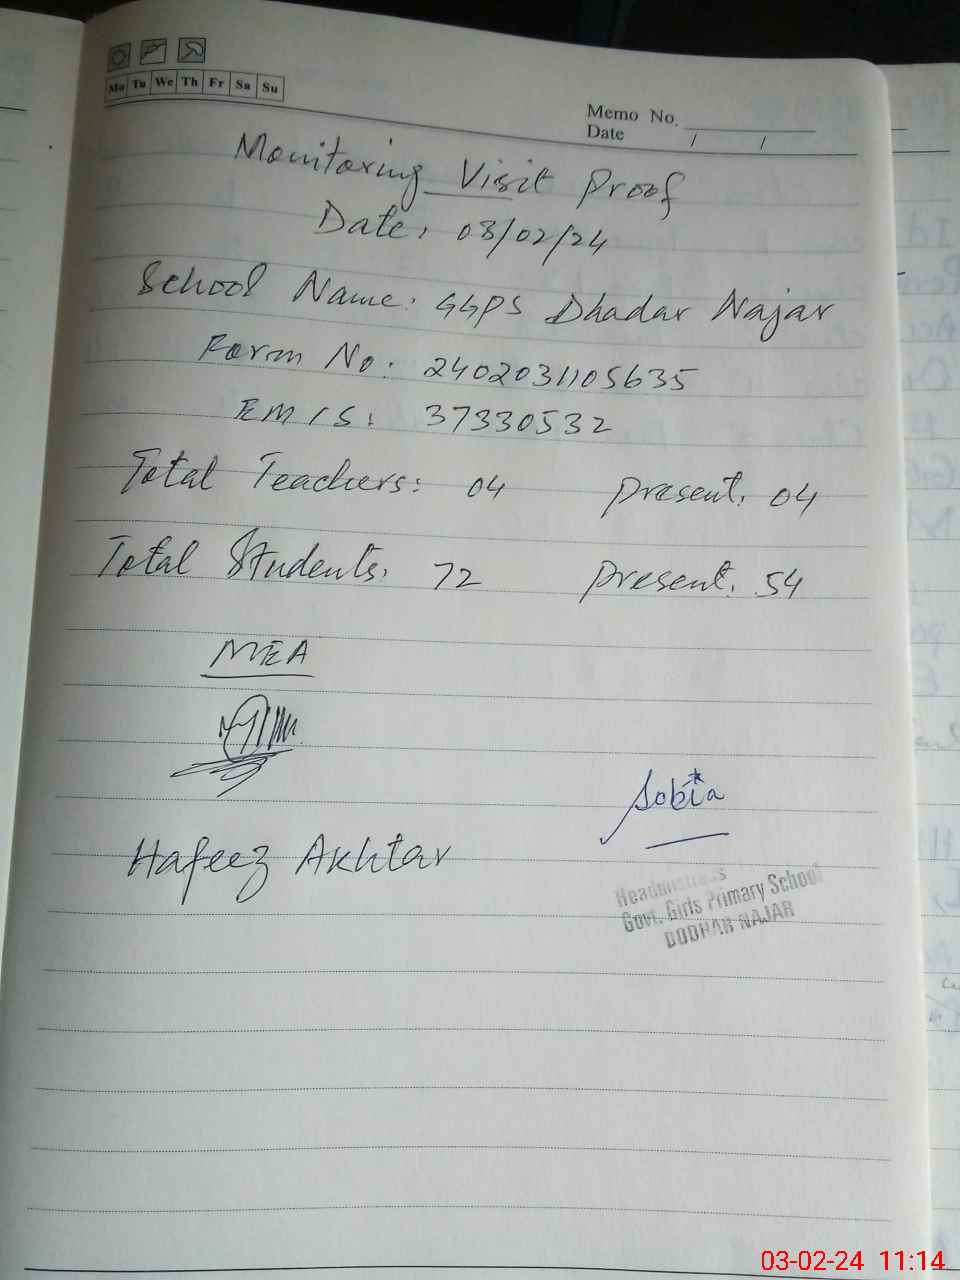 Mo Tu We Th Fr Sa Su
Memo No.
Date / /
Monitoring Visit Proof
Date: 03/02/24
School Name: GGPS Dhadar Najar
Form No: 2402031105635
EMIS: 37330532
Total Teachers: 04 Present: 04
Total Students: 72 Present: 54
MEA
Sobia
Hafeez Akhtar
Headmistress
Govt. Girls Primary School
DODHAR NAJAR
03-02-24 11:14